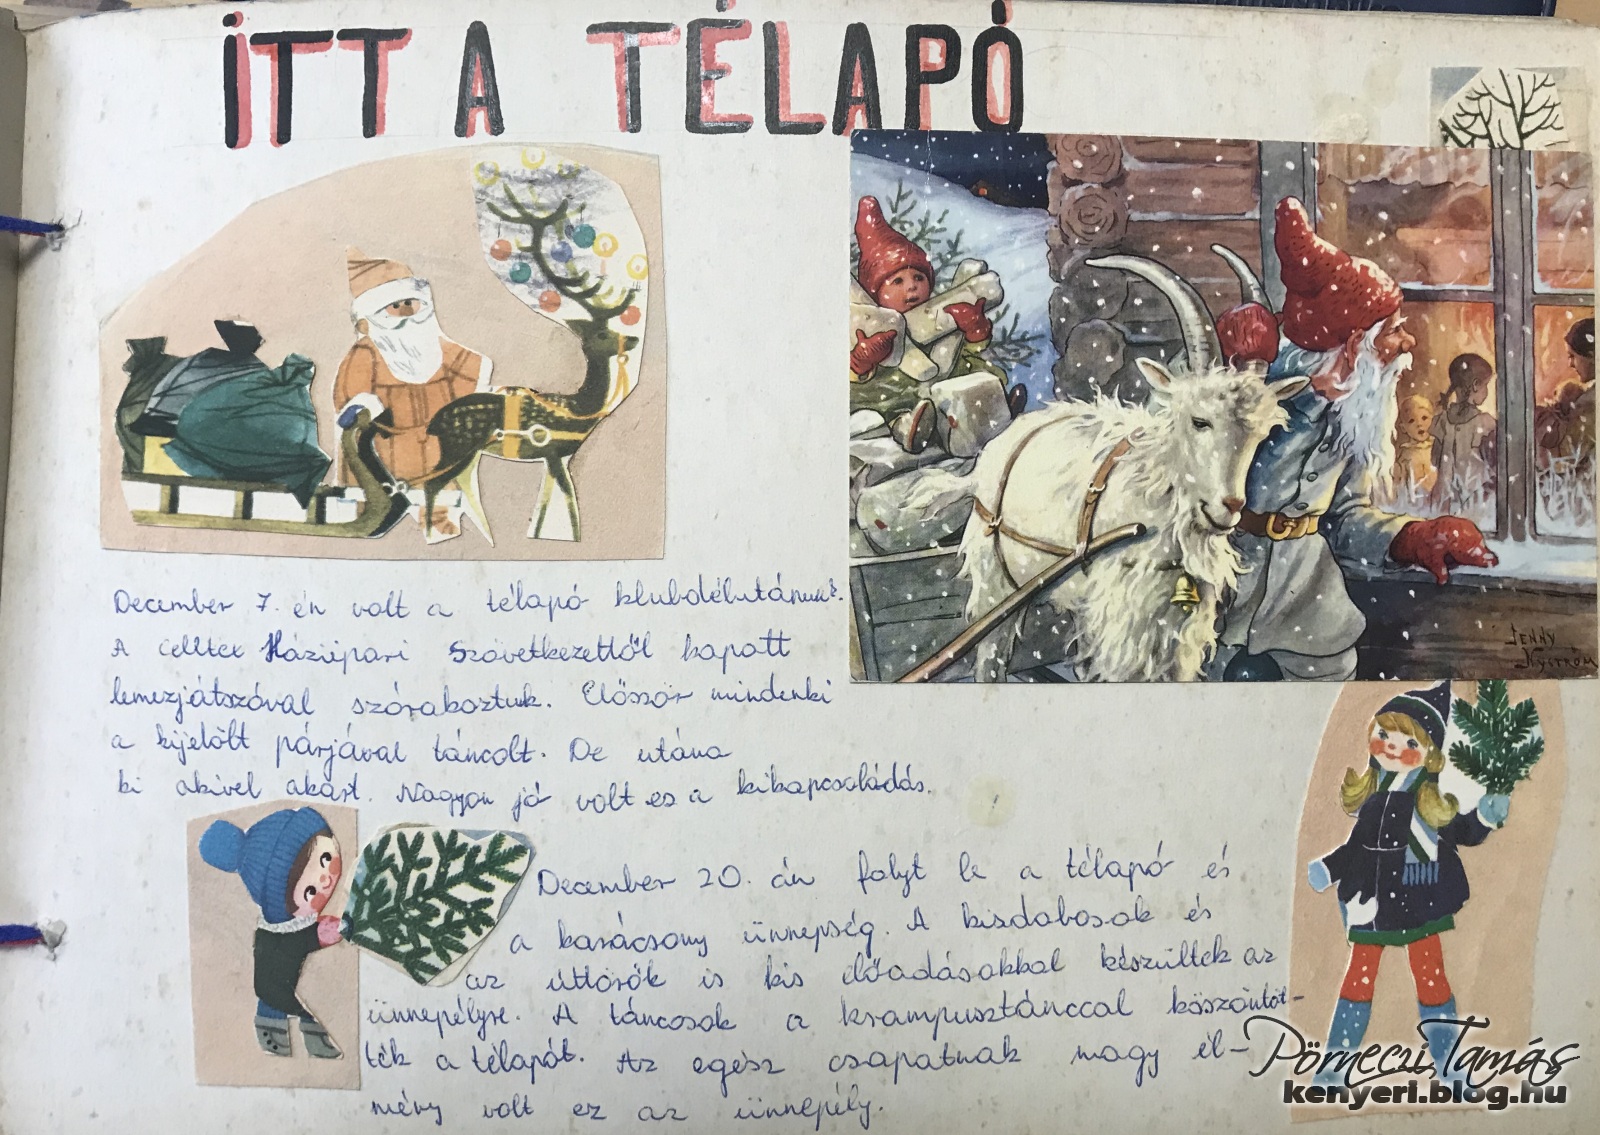 ITT A TÉLAPÓ
JENNY
NYSTRÖM
December 7. én volt a télapó klubdélutánunk.
A Celltex Háziipari Szövetkezettől kapott
lemezjátszóval szórakoztunk. Először mindenki
a kijelölt párjával táncolt. De utána
ki akivel akart. Nagyon jó volt es a kikapcsolódás.
December 20. án folyt le a télapó és
a karácsony ünnepség. A kisdobosok és
az úttörők is kis előadásokkal készültek az
ünnepélyre. A táncosok a krampusztánccal köszöntöt-
ték a télapót. Az egész csapatnak nagy él-
mény volt ez az ünnepély.
Pörneczi Tamás
kenyeri.blog.hu